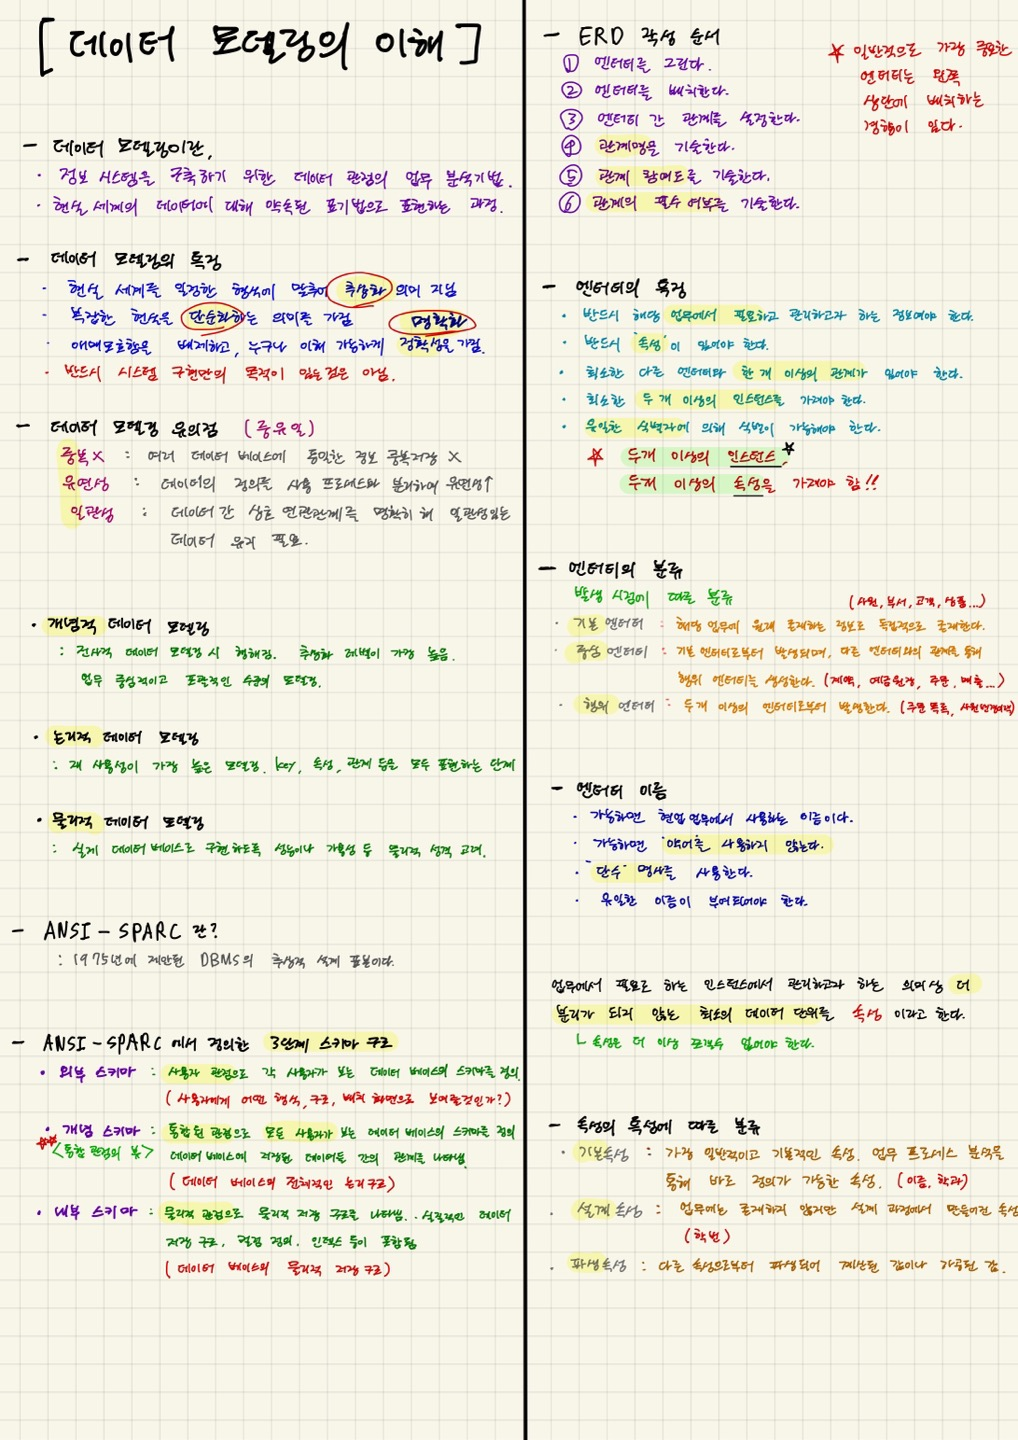 [데이터 모델링의 이해]
- 데이터 모델링이란,
· 정보 시스템을 구축하기 위한 데이터 관점의 업무 분석기법.
· 현실 세계의 데이터에 대해 약속된 표기법으로 표현하는 과정.
- 데이터 모델링의 특징
· 현실 세계를 일정한 형식에 맞추어 추상화 의미 지님
· 복잡한 현실을 단순화하는 의미를 가짐
명확화
· 애매모호함을 배제하고, 누구나 이해 가능하게 정확성을 가짐.
· 반드시 시스템 구현만의 목적이 있는것은 아님.
- 데이터 모델링 유의점 (중유일)
중복X : 여러 데이터 베이스에 동일한 정보 중복저장 X
유연성 : 데이터의 정의를 사용 프로세스와 분리하여 유연성↑
일관성 : 데이터 간 상호 연관관계를 명확히 해 일관성있는
데이터 유지 필요.
· 개념적 데이터 모델링
: 전사적 데이터 모델링 시 행해짐. 추상화 레벨이 가장 높음.
업무 중심적이고 포괄적인 수준의 모델링.
· 논리적 데이터 모델링
: 재 사용성이 가장 높은 모델링. key, 속성, 관계 등을 모두 표현하는 단계
· 물리적 데이터 모델링
: 실제 데이터베이스로 구현하도록 성능이나 가용성 등 물리적 성격 고려.
- ANSI-SPARC 란?
: 1975년에 제안된 DBMS의 추상적 설계 표본이다.
- ANSI-SPARC 에서 정의한 3단계 스키마 구조
· 외부 스키마 : 사용자 관점으로 각 사용자가 보는 데이터 베이스의 스키마를 정의.
(사용자에게 어떤 형식, 구조, 배치 화면으로 보여줄것인가?)
· 개념 스키마 : 통합된 관점으로 모든 사용자가 보는 데이터 베이스의 스키마를 정의
☆☆ <통합 관점의 뷰> 데이터 베이스에 저장된 데이터들 간의 관계를 나타냄.
(데이터 베이스의 전체적인 논리구조)
· 내부 스키마 : 물리적 관점으로 물리적 저장 구조를 나타냄. 실질적인 데이터
저장 구조, 컬럼 정의, 인덱스 등이 포함됨
(데이터 베이스의 물리적 저장 구조)
- ERD 작성 순서
① 엔터티를 그린다.
② 엔터티를 배치한다.
③ 엔터티 간 관계를 설정한다.
④ 관계명을 기술한다.
⑤ 관계 참여도를 기술한다.
⑥ 관계의 필수 여부를 기술한다.
☆ 일반적으로 가장 중요한
엔터티는 왼쪽
상단에 배치하는
경향이 있다.
- 엔터티의 특징
· 반드시 해당 업무에서 필요하고 관리하고자 하는 정보여야 한다.
· 반드시 '속성'이 있어야 한다.
· 최소한 다른 엔터티와 한 개 이상의 관계가 있어야 한다.
· 최소한 두 개 이상의 인스턴스를 가져야 한다.
· 유일한 식별자에 의해 식별이 가능해야 한다.
☆ 두개 이상의 인스턴스,☆
두개 이상의 속성을 가져야 함!!
- 엔터티의 분류
발생 시점에 따른 분류
(사원, 부서, 고객, 상품...)
· 기본 엔터티 : 해당 업무에 원래 존재하는 정보로 독립적으로 존재한다.
· 중심 엔터티 : 기본 엔터티로부터 발생되며, 다른 엔터티와의 관계를 통해
행위 엔터티를 생성한다. (계약, 예금원장, 주문, 매출...)
· 행위 엔터티 : 두개 이상의 엔터티로부터 발생한다. (주문 목록, 사원변경이력)
- 엔터티 이름
· 가능하면 현업 업무에서 사용하는 이름이다.
· 가능하면 '약어'를 사용하지 않는다.
· '단수' 명사를 사용한다.
· 유일한 이름이 부여되어야 한다.
업무에서 필요로 하는 인스턴스에서 관리하고자 하는 의미상 더
분리가 되지 않는 최소의 데이터 단위를 속성 이라고 한다.
ㄴ 속성은 더 이상 쪼갤수 없어야 한다.
- 속성의 특성에 따른 분류
· 기본속성 : 가장 일반적이고 기본적인 속성. 업무 프로세스 분석을
통해 바로 정의가 가능한 속성. (이름, 학과)
· 설계 속성 : 업무에는 존재하지 않지만 설계 과정에서 만들어진 속성
(학번)
· 파생속성 : 다른 속성으로부터 파생되어 계산된 값이나 가공된 값.